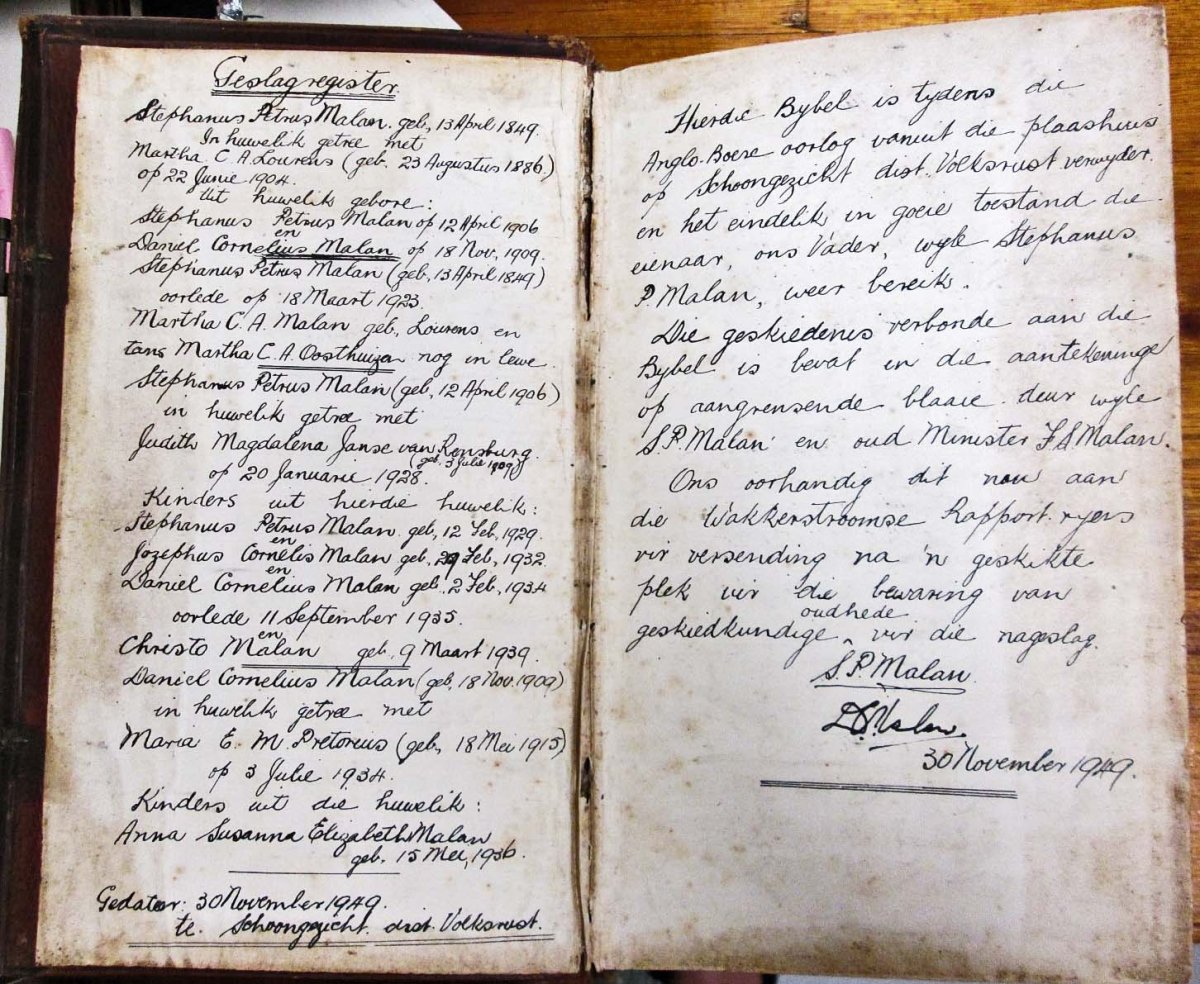 Geslagregister.
Stephanus Petrus Malan. geb, 13 April 1849.
In huwelik getree met
Martha C. A. Lourens (geb, 23 Augustus 1886)
op 22 Junie 1904.
Uit huwelik gebore:
Stephanus Petrus Malan op 12 April 1906
en
Daniel Cornelius Malan op 18 Nov, 1909.
Stephanus Petrus Malan (geb, 13 April 1849)
oorlede op 18 Maart 1923.
Martha C. A. Malan geb, Lourens en
tans Martha C. A. Oosthuizen nog in lewe.
Stephanus Petrus Malan (geb, 12 April 1906)
in huwelik getree met
Judith Magdalena Janse van Rensburg.
(geb. 3 Julie 1909)
op 20 Januarie 1928.
Kinders uit hierdie huwelik:
Stephanus Petrus Malan geb, 12 Feb, 1929.
en
Jozephus Cornelis Malan geb, 29 Feb, 1932.
en
Daniel Cornelius Malan geb. 2 Feb, 1934
oorlede 11 September 1935.
en
Christo Malan geb, 9 Maart 1939.
Daniel Cornelius Malan (geb, 18 Nov. 1909)
in huwelik getree met
Maria E. M. Pretorius (geb, 18 Mei 1915)
op 3 Julie 1934.
Kinders uit die huwelik:
Anna Susanna Elizabeth Malan
geb. 15 Mei, 1936.
Gedateer: 30 November 1949.
te. Schoongezicht. dist. Volksrust.
Hierdie Bybel is tydens die
Anglo-Boere oorlog vanuit die plaashuis
op Schoongezicht dist. Volksrust verwyder.
en het eindelik in goeie toestand die
eienaar, ons Vader, wyle Stephanus
P. Malan, weer bereik.
Die geskiedenis verbonde aan die
Bybel is bevat in die aantekeninge
op aangrensende blaaie deur wyle
S.P. Malan en oud Minister F.S. Malan.
Ons oorhandig dit nou aan
die Wakkerstroomse Rapport. ryers
vir versending na 'n geskikte
plek vir die bewaring van
oudhede
geskiedkundige ^ vir die nageslag.
S.P. Malan.
D.C. Malan.
30 November 1949.